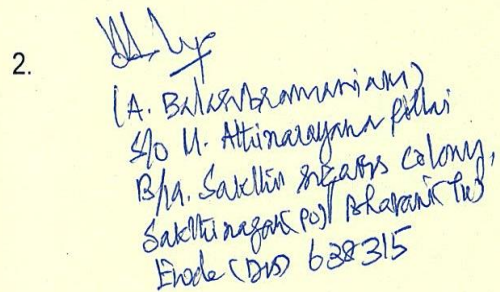 2.
(A. Balasubramaniam)
S/o M. Athinarayana Pillai
B/19. Sakthi sugars colony,
Sakthinagar(Po) Bhavani(Tk)
Erode (Dis) 638315